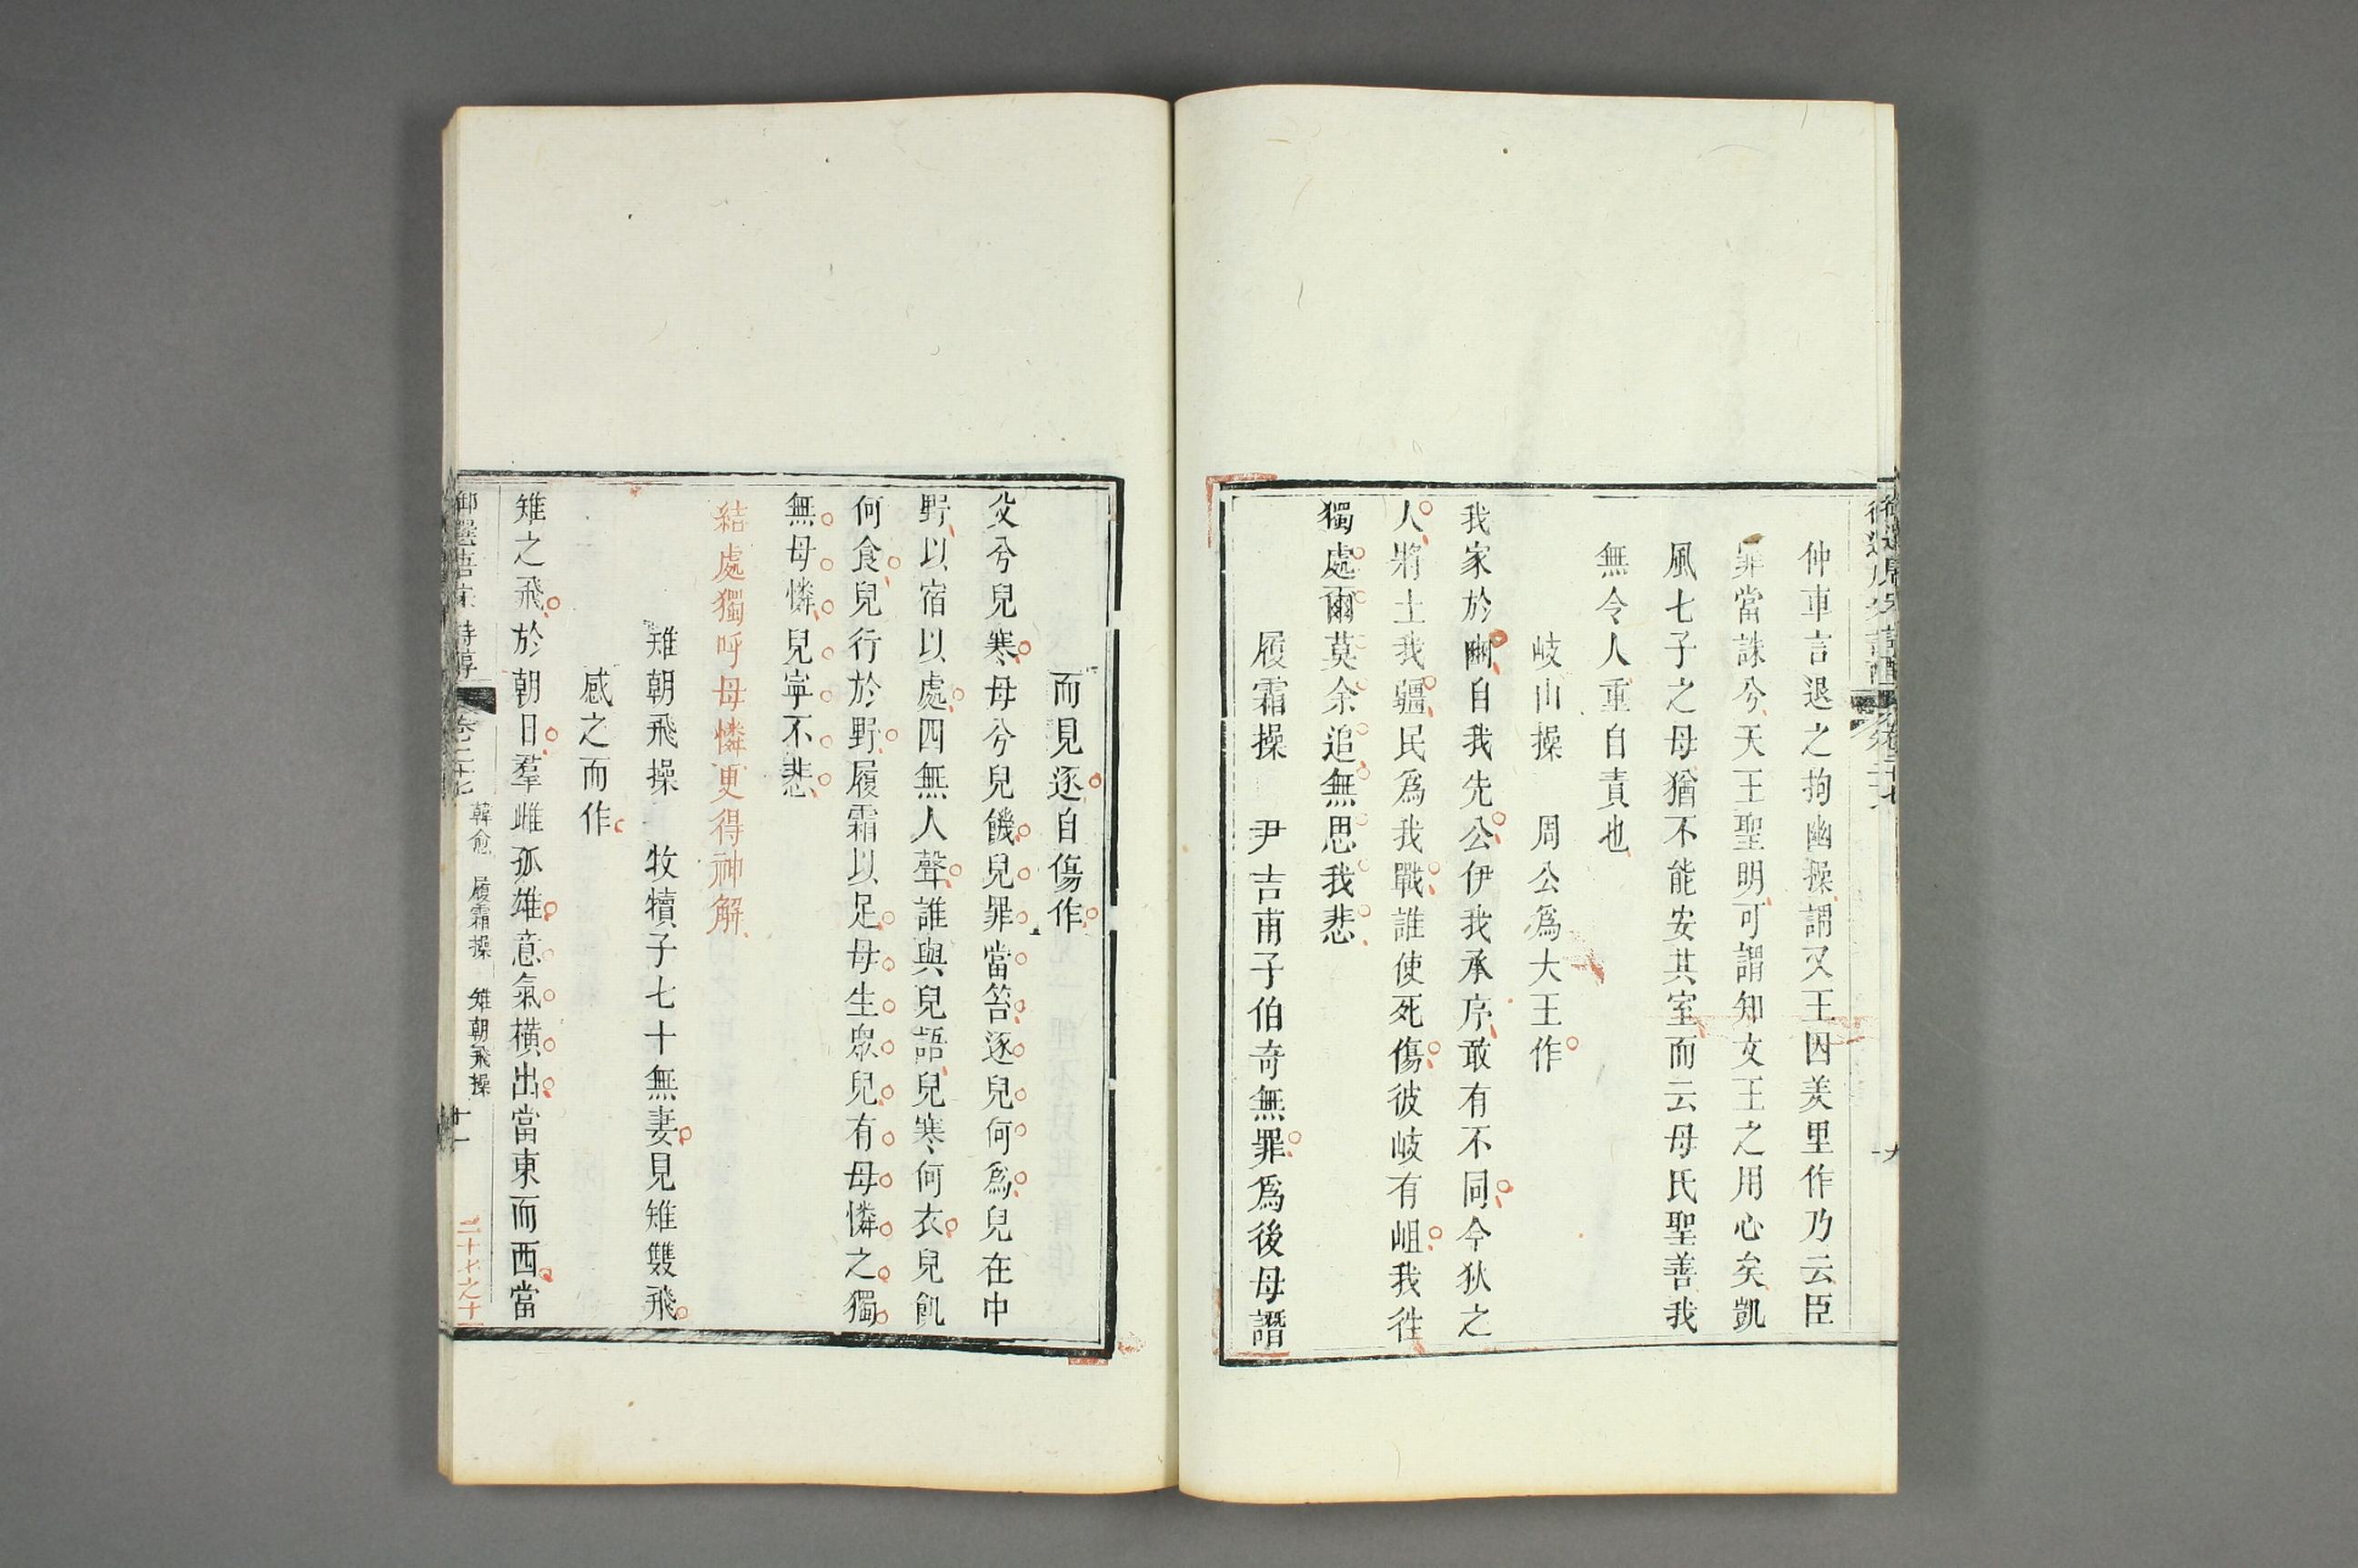 仲車言退之拘幽操謂文王囚羑里作乃云臣
罪當誅兮天王聖明可謂知文王之用心矣凱
風七子之母猶不能安其室而云母氏聖善我
無令人重自責也
岐山操　周公爲大王作
我家於豳自我先公伊我承序敢有不同今狄之
人將土我疆民爲我戰誰使死傷彼岐有岨我往
獨處爾莫余追無思我悲
履霜操　尹吉甫子伯奇無罪爲後母譖
而見逐自傷作
父兮兒寒母兮兒饑兒罪當笞逐兒何爲兒在中
野以宿以處四無人聲誰與兒語兒寒何衣兒飢
何食兒行於野履霜以足母生眾兒有母憐之獨
無母憐兒寧不悲
結處獨呼母憐更得神解
雉朝飛操　牧犢子七十無妻見雉雙飛
感之而作
雉之飛於朝日羣雌孤雄意氣橫出當東而西當
御選唐宋詩醇　卷二十七　韓愈　履霜操　雉朝飛操　十一　二十七之十